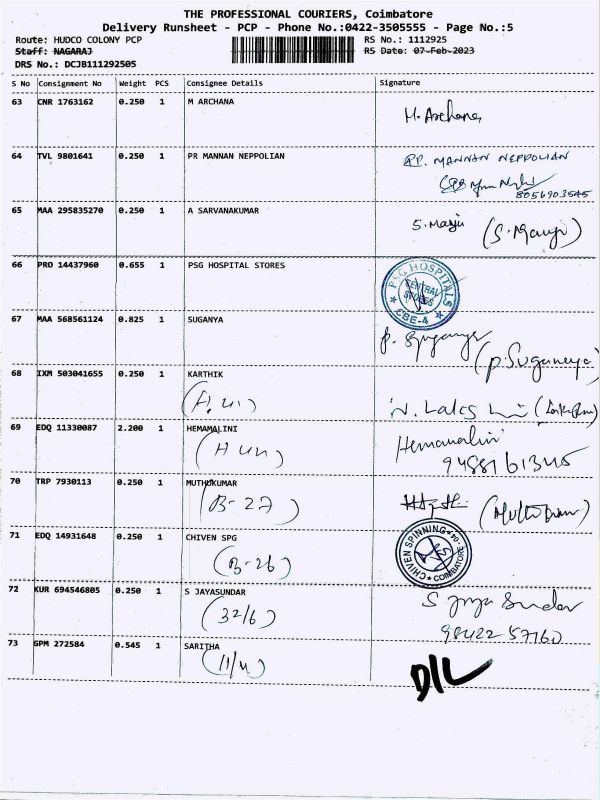 THE PROFESSIONAL COURIERS, Coimbatore
Delivery Runsheet - PCP - Phone No.:0422-3505555 - Page No.:5
Route: HUDCO COLONY PCP RS No.: 1112925
Staff: NAGARAJ RS Date: 07-Feb-2023
DRS No.: DCJB111292505
S No Consignment No Weight PCS Consignee Details Signature
63 CNR 1763162 0.250 1 M ARCHANA
M. Archana
64 TVL 9801641 0.250 1 PR MANNAN NEPPOLIAN
PP. MANNAN NEPPOLIAN
8056903545
65 MAA 295835270 0.250 1 A SARVANAKUMAR
S. Manju (S. Manju)
66 PRO 14437960 0.655 1 PSG HOSPITAL STORES
PSG HOSPITALS
CENTRAL
STORES
CBE-4
67 MAA 568561124 0.825 1 SUGANYA
P. Suganya
(P. Suganeya)
68 IXM 503041655 0.250 1 KARTHIK
N. Laks
69 EDQ 11330087 2.200 1 HEMAMALINI
Hemamalini
70 TRP 7930113 0.250 1 MUTHUKUMAR
(B-27)
71 EDQ 14931648 0.250 1 CHIVEN SPG
(B-26)
CHIVEN SPINNING
COIMBATORE
72 KUR 694546805 0.250 1 S JAYASUNDAR
(32/6)
S Jaya Sundar
98422 57160
73 GPM 272584 0.545 1 SARITHA
(11/4)
D/L